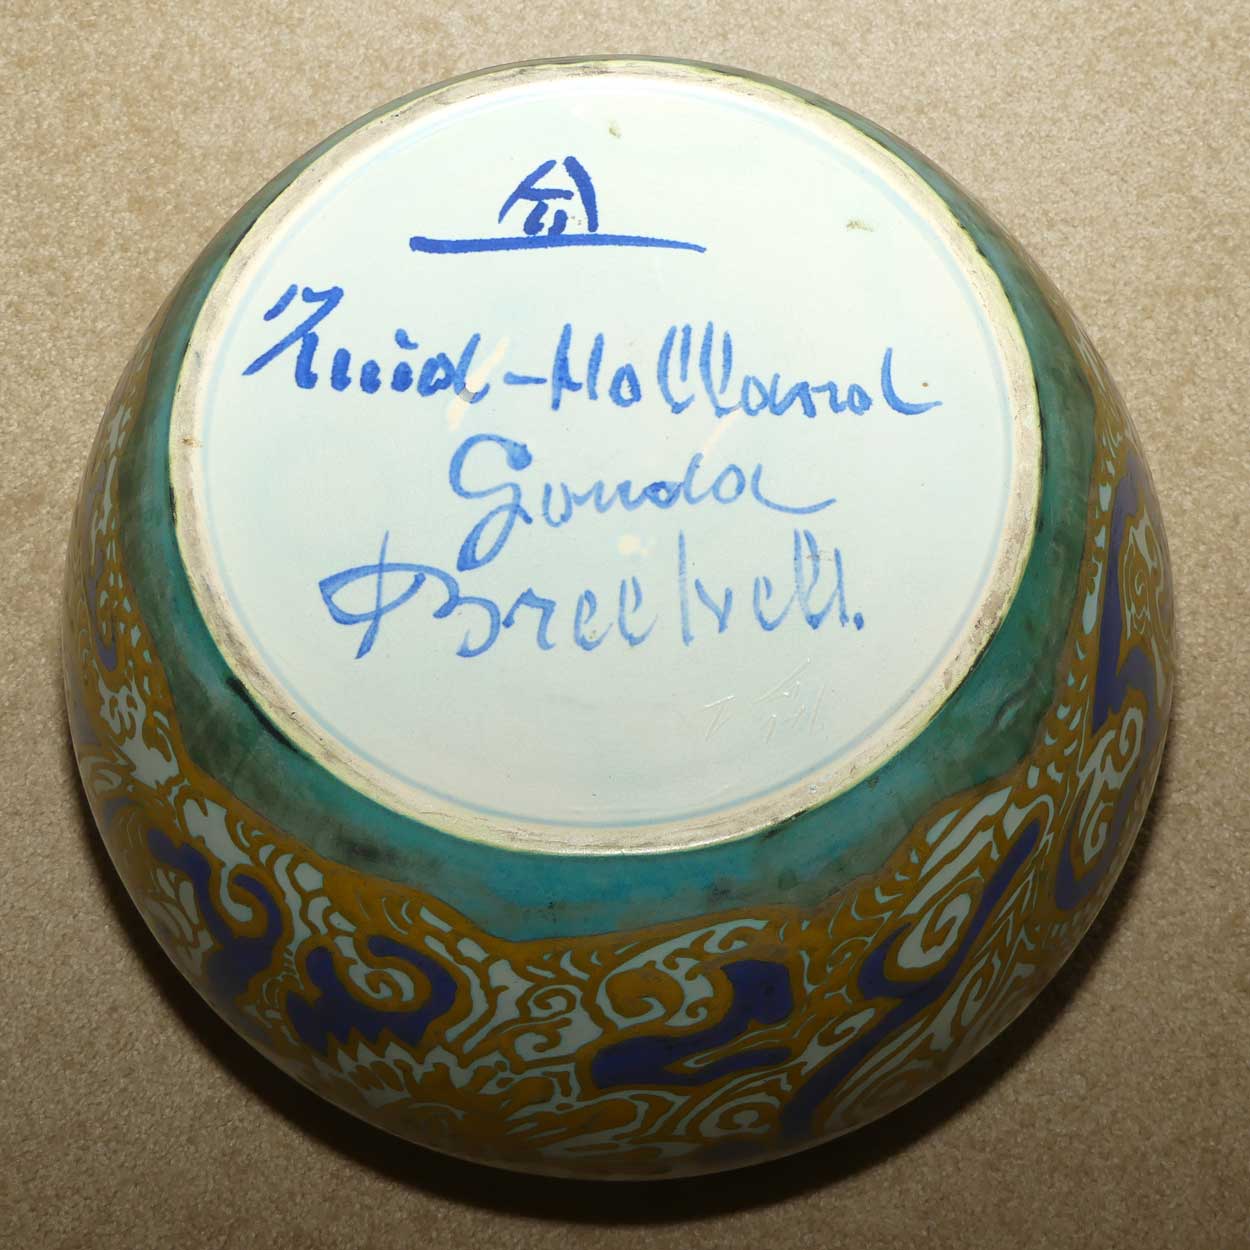 Zuid-Holland
Gouda
Breetvelt.